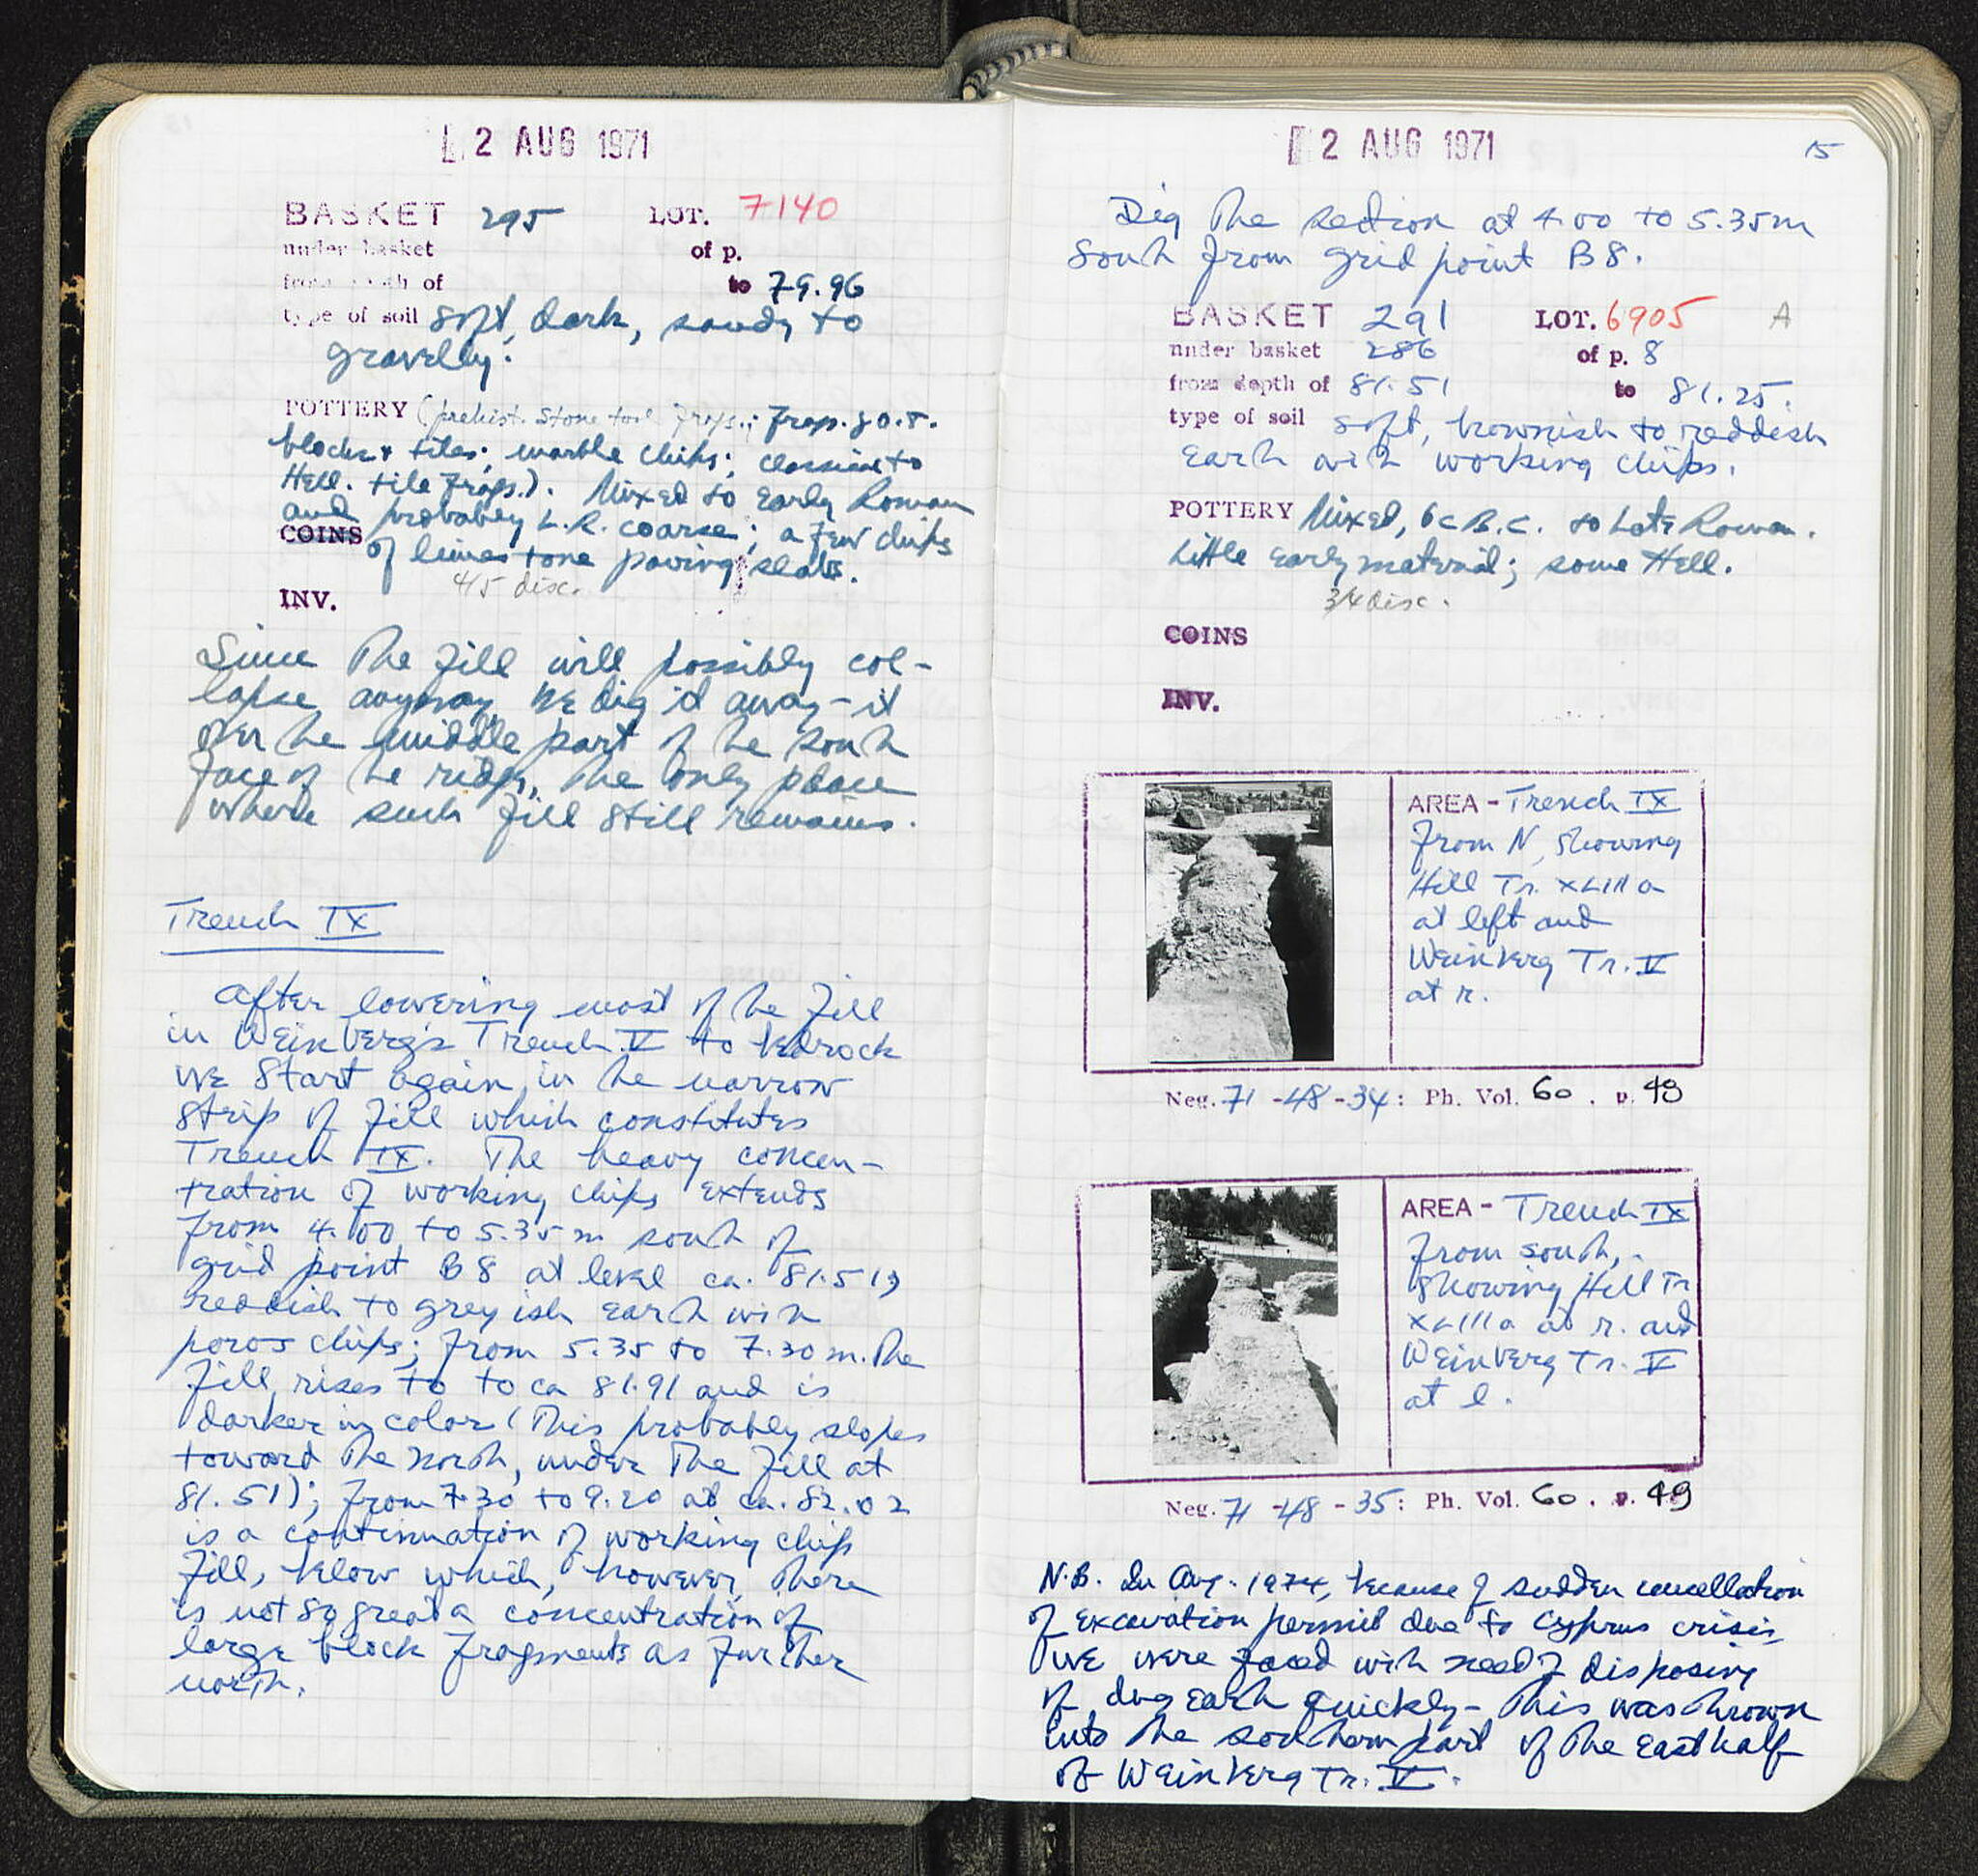 2 AUG 1971
BASKET 295 LOT. 7140
under basket of p.
from depth of to 79.96
type of soil soft, dark, sandy to
gravelly.
POTTERY (prehist. stone tool frags.; frags. of O.T.
blocks & tiles; marble chips; classical to
Hell. tile frags.). Mixed to Early Roman
and probably L.R. coarse; a few chips
COINS of limestone paving slabs.
4/5 disc.
INV.
Since the fill will possibly col-
lapse anyway, we dig it away – it
over the middle part of the south
face of the ridge, the only place
where such fill still remains.
Trench IX
After lowering most of the fill
in Weinberg's Trench V to bedrock
we start again in the narrow
strip of fill which constitutes
Trench IX. The heavy concen-
tration of working chips extends
from 4.00 to 5.35 m south of
grid point B8 at level ca. 81.51,
reddish to greyish earth with
poros chips; from 5.35 to 7.30 m. the
fill rises to to ca 81.91 and is
darker in color (This probably slopes
toward the north, under the fill at
81.51); from 7.30 to 9.20 at ca. 82.02
is a continuation of working chip
fill, below which, however, there
is not so great a concentration of
large block fragments as further
north.
2 AUG 1971
15
Dig the section at 4.00 to 5.35m
south from grid point B8.
BASKET 291 LOT. 6905 A
under basket 286 of p. 8
from depth of 81.51 to 81.25.
type of soil soft, brownish to reddish
earth with working chips.
POTTERY Mixed, 6c B.C. to Late Roman.
Little early material; some Hell.
3/4 disc.
COINS
INV.
AREA - Trench IX
from N, showing
Hill Tr. XLIIIa
at left and
Weinberg Tr. V
at r.
Neg. 71-48-34: Ph. Vol. 60. p. 49
AREA - Trench IX
from south,
showing Hill Tr
XLIIIa at r. and
Weinberg Tr. V
at l.
Neg. 71-48-35: Ph. Vol. 60. p. 49
N.B. In Aug. 1974, because of sudden cancellation
of excavation permit due to Cyprus crisis,
we were faced with need of disposing
of dug earth quickly – This was thrown
into the southern part of the east half
of Weinberg Tr. V.